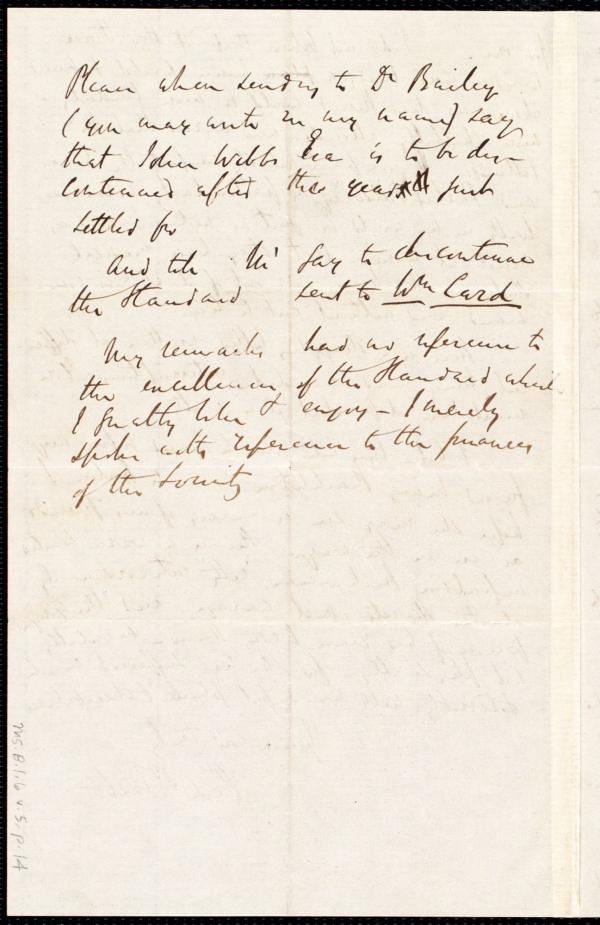 Please when sending to Dr Bailey
(you may write in my name) say
that John Webbs Era is to be dis-
continued after the years just
settled for
And to say to discontinue
the Standard sent to Wm Card
My remarks had no reference to
the excellency of the Standard which
I greatly like & enjoy - I merely
spoke with reference to the finances
of the Society
Ms.B.1.6 v.5, p.14